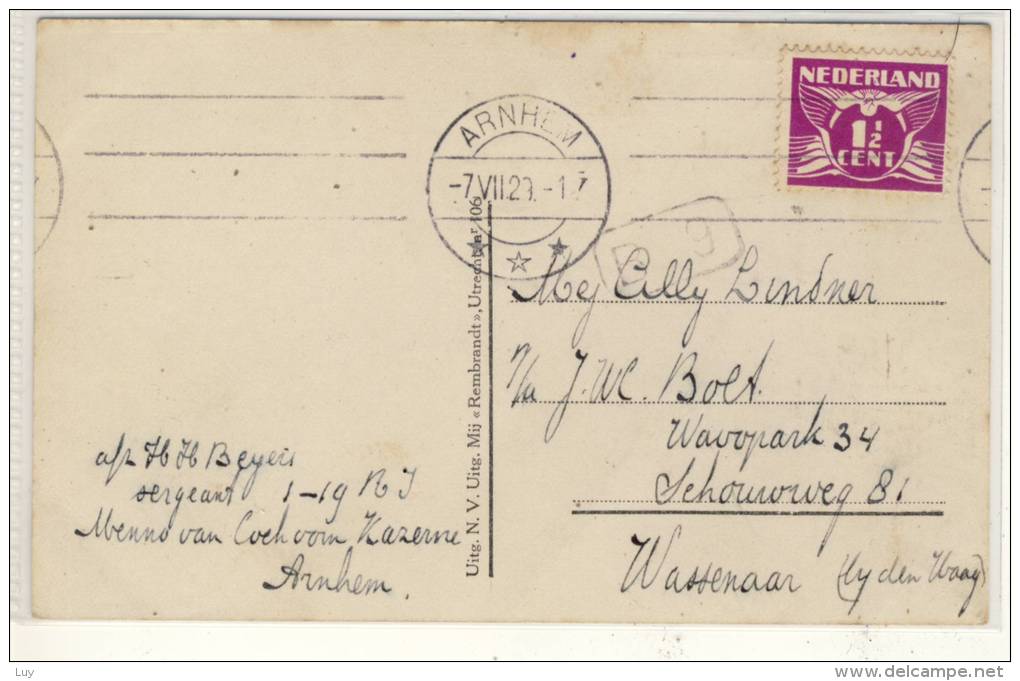 NEDERLAND
1½
CENT
ARNHEM
-7.VII.29.-1
Uitg. N. V. Uitg. Mij «Rembrandt», Utrecht 106
Mej Cilly Lindner
p/a J.W.C. Bolt.
Wavopark 34
Schouwweg 81
Wassenaar (by den Waag)
afz H H Beyers
sergeant 1-19 R I
Menno van Coehoorn Kazerne
Arnhem.
Luy
delcampe.net